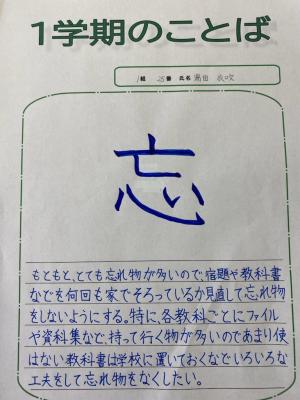 1学期のことば
1組 25番 氏名
忘
もともと、とても忘れ物が多いので、宿題や教科書
などを何回も家でそろっているか見直して忘れ物
をしないようにする。特に、各教科ごとにファイル
や資料集など、持って行く物が多いのであまり使
はない教科書は学校に置いておくなどいろいろな
工夫をして忘れ物をなくしたい。